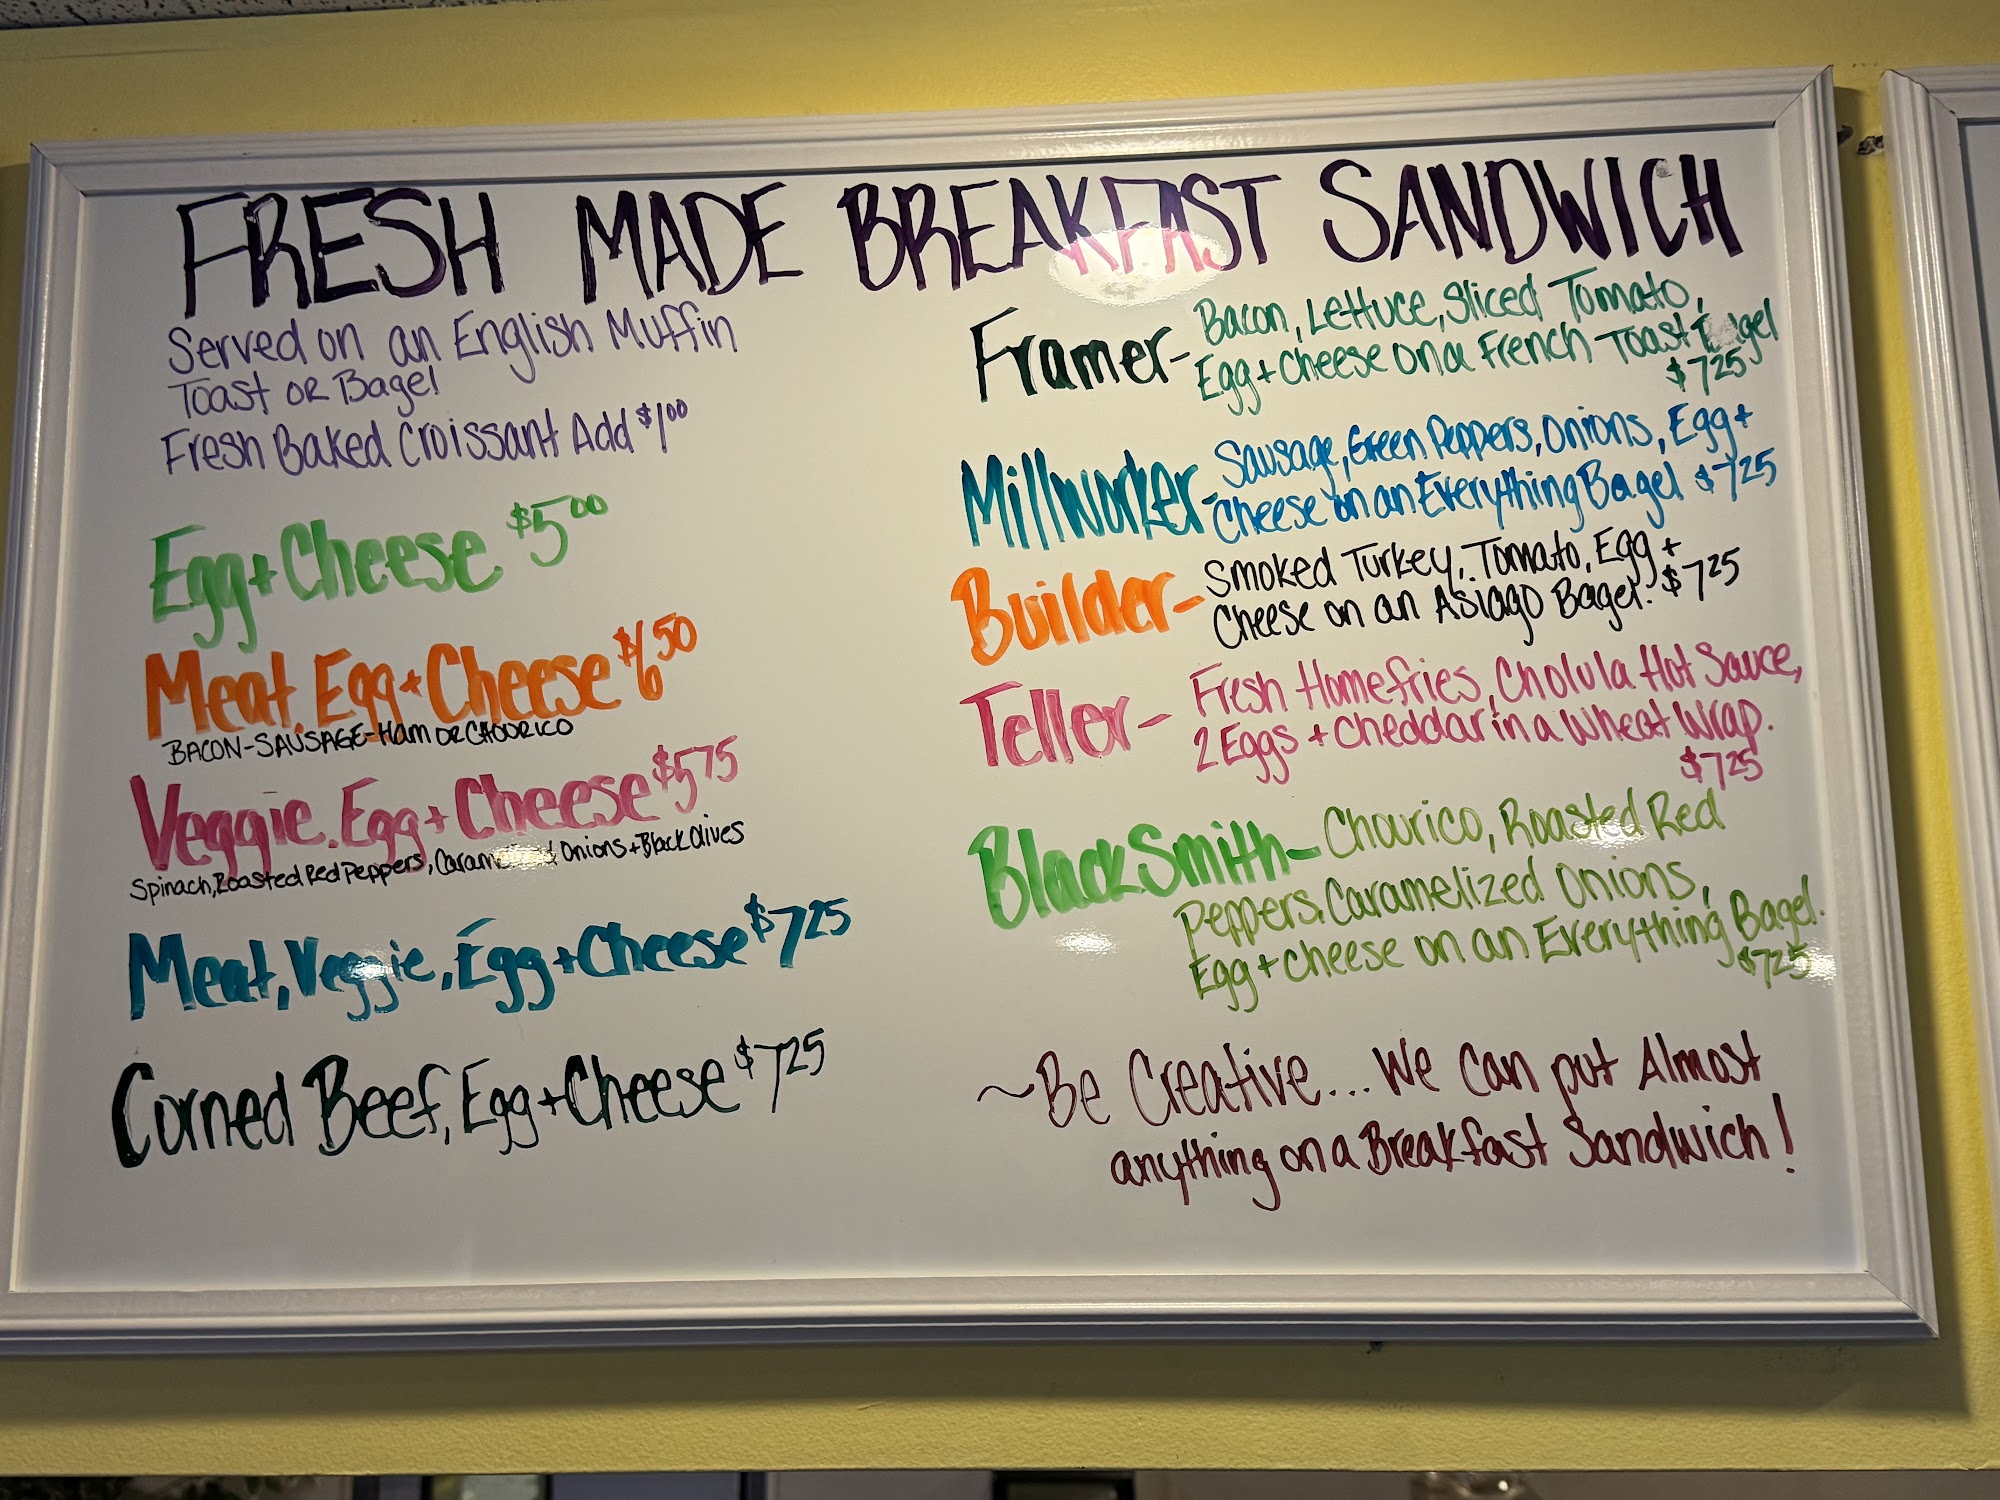 FRESH MADE BREAKFAST SANDWICH
Served on an English Muffin
Toast or Bagel
Fresh Baked Croissant Add $1.00
Egg + Cheese $5.00
Meat, Egg + Cheese $6.50
BACON-SAUSAGE-Ham OR CHOURICO
Veggie, Egg + Cheese $5.75
Spinach, Roasted Red Peppers, Caramelized Onions + Black Olives
Meat, Veggie, Egg + Cheese $7.25
Corned Beef, Egg + Cheese $7.25
Framer- Bacon, Lettuce, Sliced Tomato,
Egg + Cheese on a French Toast Bagel
$7.25
Millworker- Sausage, Green Peppers, Onions, Egg +
Cheese on an Everything Bagel $7.25
Builder- Smoked Turkey, Tomato, Egg +
Cheese on an Asiago Bagel. $7.25
Teller- Fresh Homefries, Cholula Hot Sauce,
2 Eggs + Cheddar in a Wheat Wrap.
$7.25
BlackSmith- Chourico, Roasted Red
Peppers, Caramelized Onions,
Egg + Cheese on an Everything Bagel.
$7.25
~Be Creative.... We Can put Almost
anything on a Breakfast Sandwich!